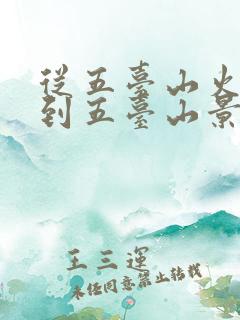 從五臺山火
到五臺山景
王三運
未經同意禁止轉載